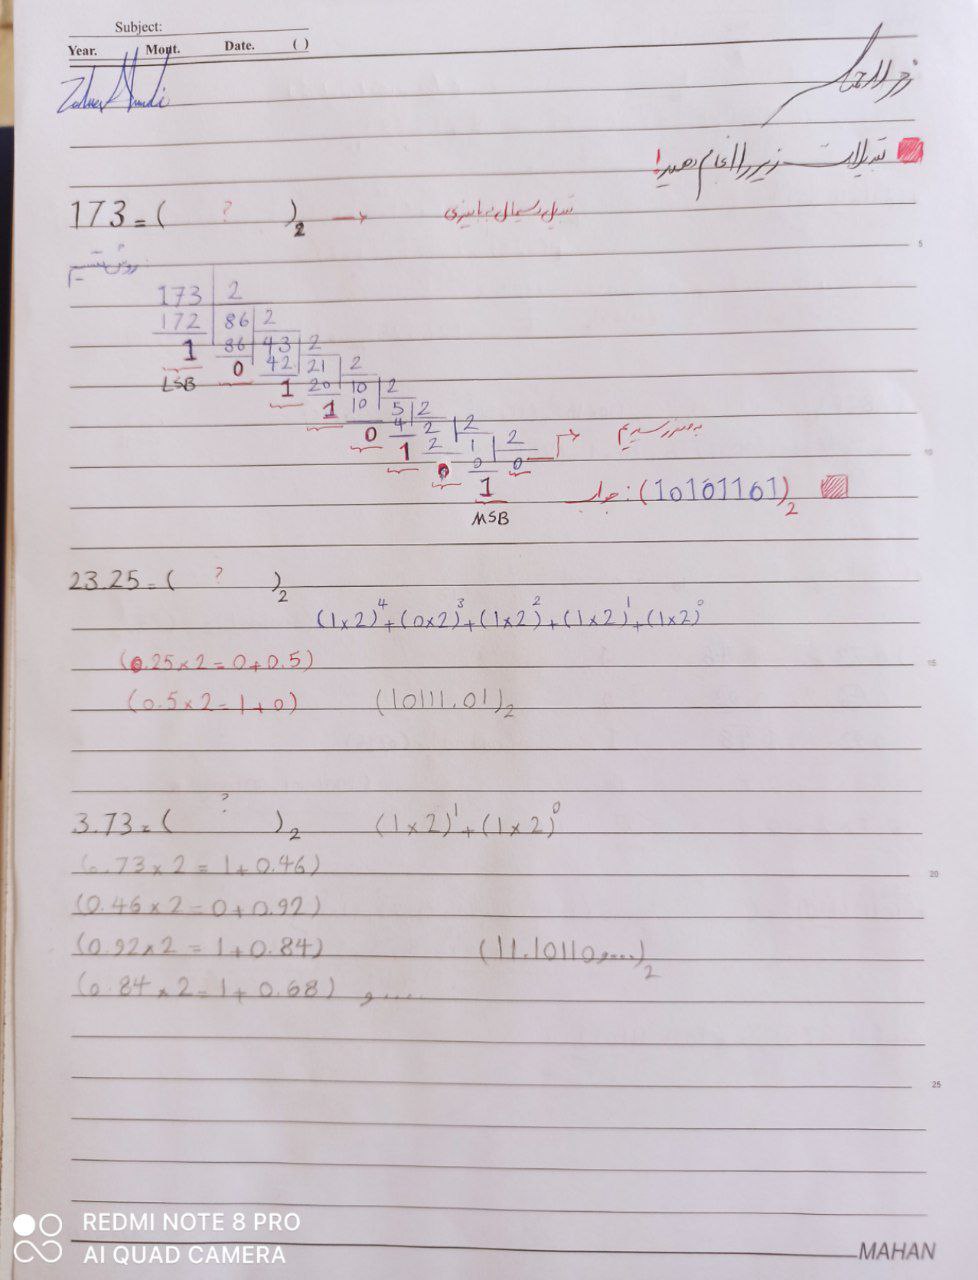 Subject:
Year. Mont. Date. ( )
تبدیلات زیر را انجام دهید!
173 = ( ? )2 → تبدیل دسیمال به باینری
روش تقسیم
173 2
172 86 2
1 86 43 2
LSB 0 42 21 2
1 20 10 2
1 10 5 2
0 4 2 2
1 2 1 2
0 0 0 → به صفر رسیدیم
1
MSB
جواب: (10101101)2
23.25 = ( ? )2
(1×2)^4+(0×2)^3+(1×2)^2+(1×2)^1+(1×2)^0
(0.25×2=0+0.5)
(0.5×2=1+0) (10111.01)2
3.73 = ( ? )2 (1×2)^1+(1×2)^0
(0.73×2=1+0.46)
(0.46×2=0+0.92)
(0.92×2=1+0.84) (11.10110,....)2
(0.84×2=1+0.68) و....
5
10
15
20
25
REDMI NOTE 8 PRO
AI QUAD CAMERA
MAHAN